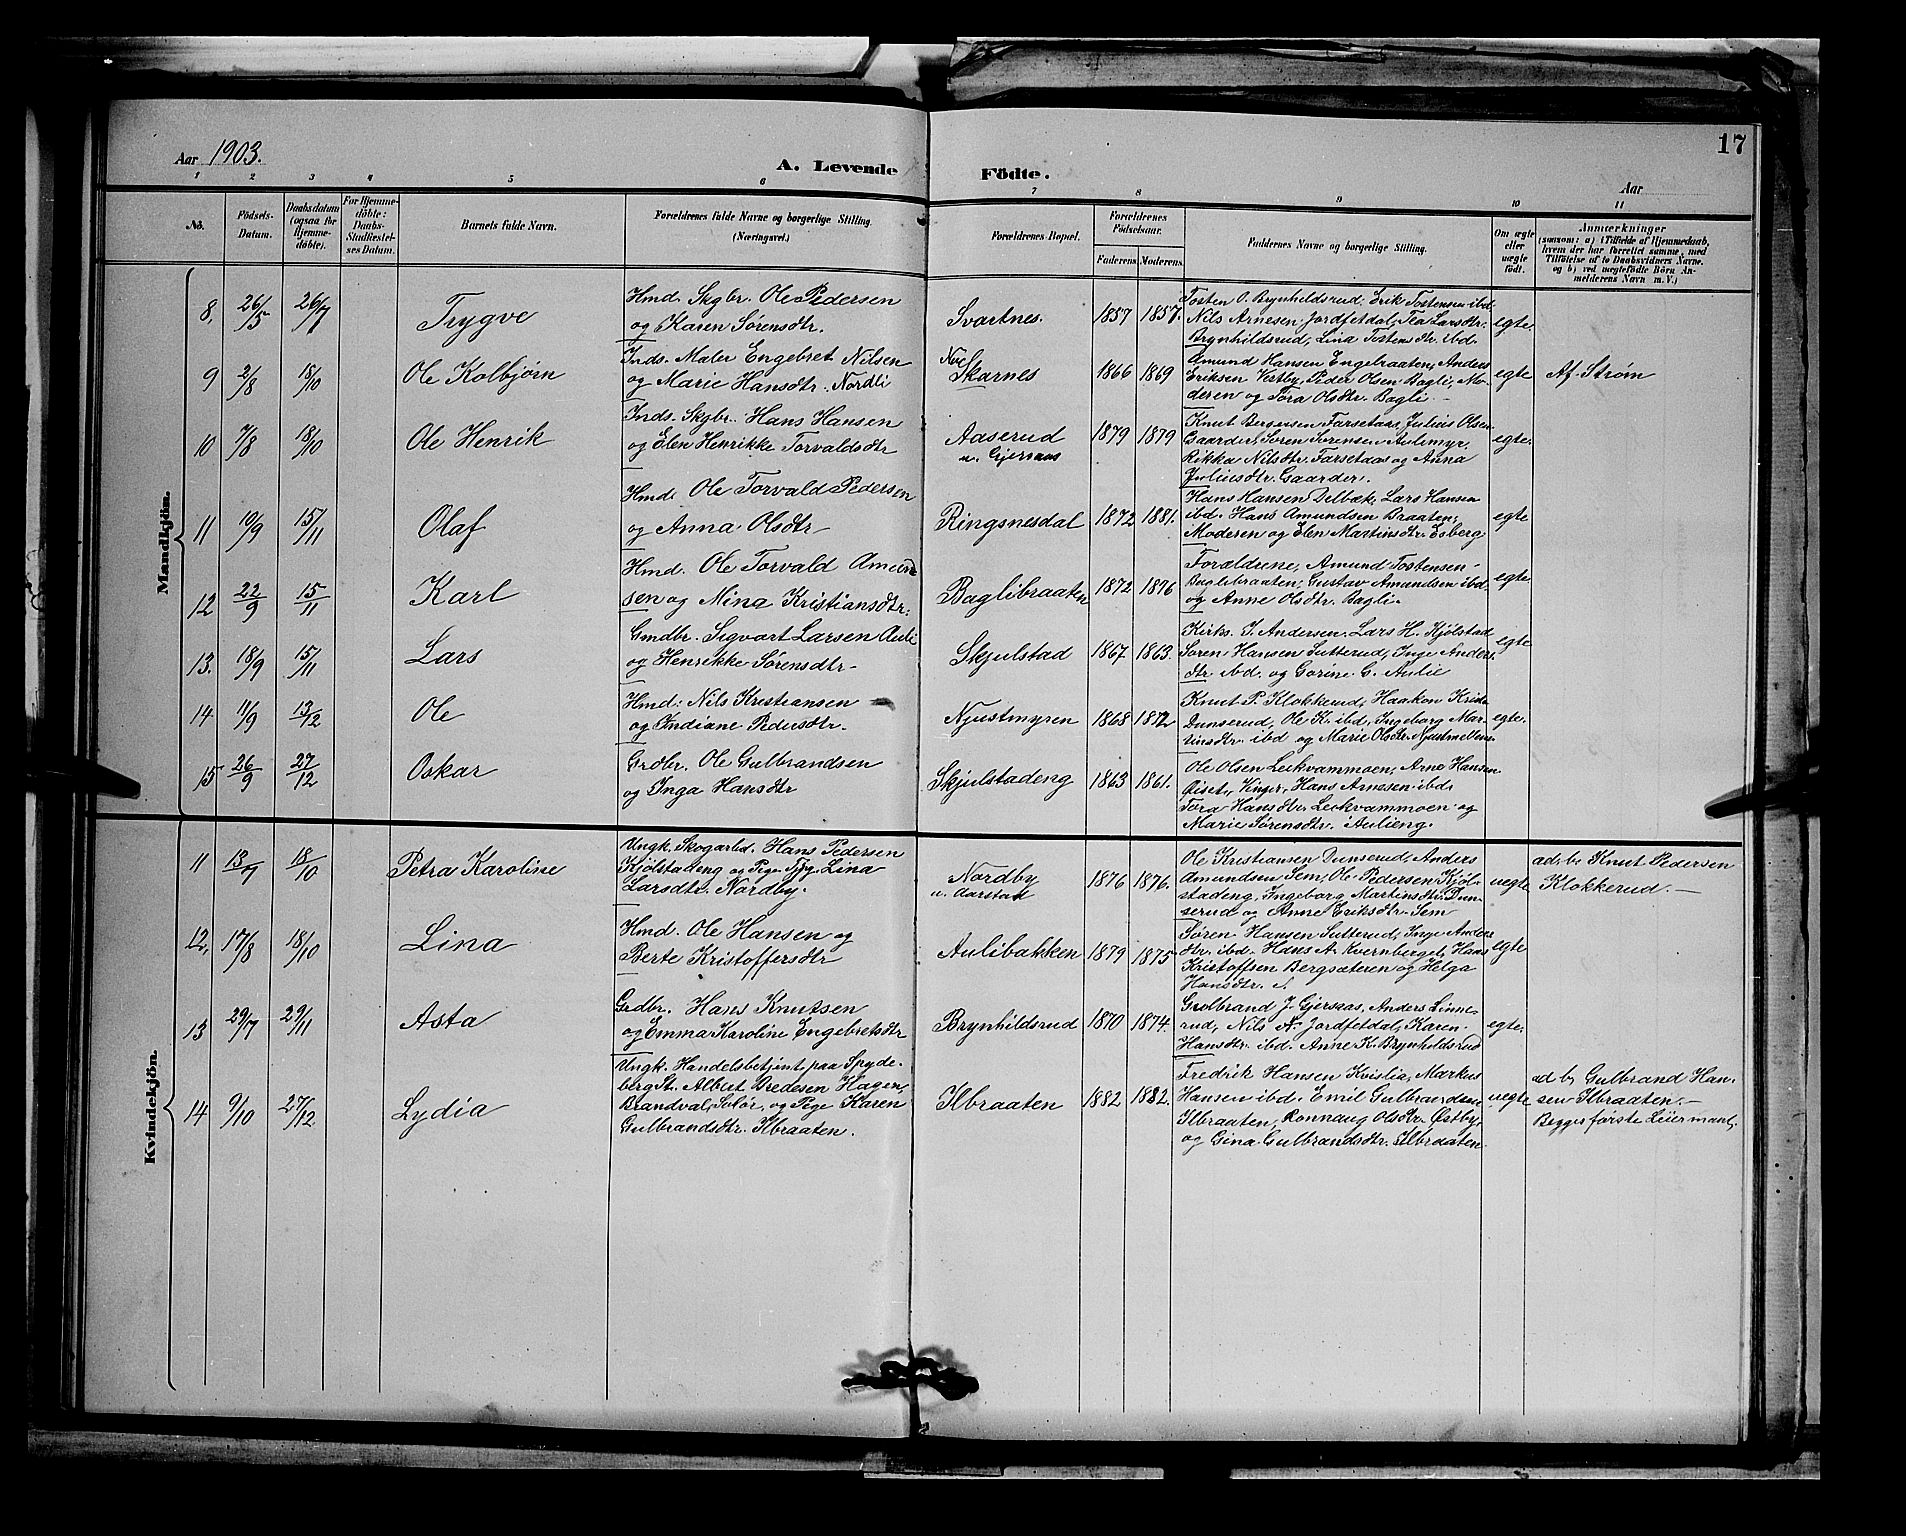 17
Aar 1903.
A. Levende Födte.
Aar
1 2 3 4 5 6 7 8 9 10 11
No. Födsels-Datum. Daabsdatum (ogsaa for Hjemme-döbte). For Hjemme-döbte: Daabs-Stadfæstel-ses Datum. Barnets fulde Navn. Forældrenes fulde Navne og borgerlige Stilling. (Næringsvei.) Forældrenes Bopæl. Forældrenes Födselsaar. Faderens. Moderens. Faddernes Navne og borgerlige Stilling. Om ægte eller uægte födt. Anmærkninger (saasom: a) i Tilfælde af Hjemmedaab, hvem der har forrettet samme, med Tilföielse af to Daabsvidners Navne. og b) ved uægtefödte Börn An-melderens Navn m. V.)
Mandkjön.
8, 26/5 26/7 Trygve
Hmd. Skgbr. Ole Pedersen
og Karen Sørensdtr.
Svartnes. 1857 1857.
Tosten O. Brynhildsrud, Erik Tostensen ibd.
Nils Arnesen Jordfetdal, Tea Larsdtr.
Brynhildsrud, Lina Tostensdtr ibd.
egte.
9 2/8 18/10 Ole Kolbjørn
Inds. Maler Engebret Nilsen
og Marie Hansdtr. Nordli
Skarnes 1866 1869
Amund Hansen Engebraaten, Anders
Eriksen Vestby, Peder Olsen Bagli, Mo-
deren og Tora Olsdtr. Bagli.
egte
Af Strøm
10 7/8 18/10 Ole Henrik
Inds. Skgbr. Hans Hansen
og Elen Henrikke Torvaldsdtr
Aaserud
u. Gjersaas
1879 1879
Knut Bergersen Farsetaas, Julius Olsen
Gaarder, Søren Sørensen Aulimyr,
Rikka Nilsdtr. Farsetaas og Anna
Juliusdtr. Gaarder.
egte.
11 10/9 15/11 Olaf
Hmd. Ole Torvald Pedersen
og Anna Olsdtr
Ringsnesdal 1872 1881.
Hans Hansen Delbæk, Lars Hansen
ibd. Hans Amundsen Braaten,
Moderen og Elen Martinsdtr. Esberg
egte
12 22/9 15/11 Karl
Hmd. Ole Torvald Amund
sen og Mina Kristiansdtr.
Baglibraaten 1872 1876
Forældrene, Amund Tostensen
Baglibraaten, Gustav Amundsen ibd.
og Anne Olsdtr. Bagli.
egte
13. 18/9 15/11 Lars
Gmdbr. Sigvart Larsen Auli
og Henrikke Sørensdtr
Skjulstad 1867 1863.
Kirks. J. Andersen, Lars H. Kjølstad
Søren Hansen Sutterud, Inge Anders
dtr ibd. og Gorine G. Aulie
egte
14 11/9 13/12 Ole
Hmd: Nils Kristiansen
og Indiane Pedersdtr.
Njustmyren 1868 1872
Knut P. Klokkerud, Haakon Krist.
Dunserud, Ole K. ibd, Ingeborg Mar-
tinsdtr. ibd og Marie Olsdtr. Njustmellem
egte.
15 26/9 27/12 Oskar
Grdbr. Ole Gulbrandsen
og Inga Hansdtr
Skjulstadeng 1863 1861.
Ole Olsen Leikvammoen, Arne Hansen
Øiset, Vinger, Hans Arnesen ibd.
Tora Hansdtr. Leikvammoen og
Marie Sørensdtr. Aulieng.
Kvindekjön.
11 13/7 18/10 Petra Karoline
Ungk. Skogarbd. Hans Pedersen
Kjölstadeng og Pige Lina
Larsdtr. Nordby.
Nordby
u. Aarstad
1876 1876.
Ole Kristiansen Dunserud, Anders
Amundsen Sem, Ole Pedersen Kjøl-
stadeng, Ingeborg Martinsdtr. Dun-
serud og Anne Eriksdtr. Sem
uegte
adb. Knut Pedersen
Klokkerud.
12, 17/8 18/10 Lina
Hmd. Ole Hansen og
Berte Kristoffersdtr
Aulibakken 1879 1875
Søren Hansen Sutterud, Inge Anders
dtr. ibd. Hans A. Kvernberget, Hans
Kristoffsen Bergsæteren og Helga
Hansdtr.
egte
13 29/7 29/11 Asta
Grdbr. Hans Knutsen
og Emma Karoline Engebretsdtr
Brynhildsrud 1870 1874.
Gulbrand J. Gjersaas, Anders Linne-
rud, Nils A. Jordfetdal, Karen
Hansdtr. ibd. Anne K. Brynhildsrud
egte.
14 9/10 27/12 Lydia
Ungk. Handelsbetjent paa Spyde-
berg St. Albert Bredesen Hagen,
Brandval, Solør, og Pige Karen
Gulbrandsdtr. Ilbraaten.
Ilbraaten 1882 1882.
Fredrik Hansen Kvislia, Markus
Hansen ibd. Emil Gulbrandsen
Ilbraaten, Ronnaug Olsdtr. Østby,
og Gina Gulbrandsdtr. Ilbraaten
uegte
adb. Gulbrand Han-
sen Ilbraaten.
Begges første Leiermaal.